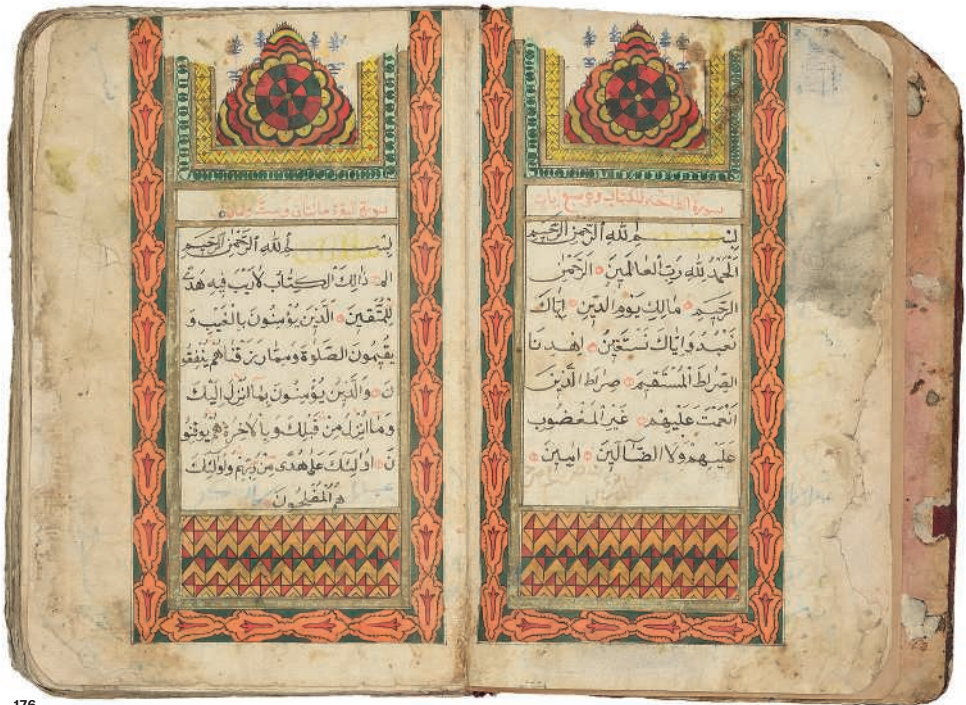 سورة الفاتحة للكتاب وهي سبع ايات
بِسْمِ اللهِ الرَّحْمٰنِ الرَّحِيْمِ
اَلْحَمْدُ لِلّٰهِ رَبِّ الْعَالَمِيْنَ ۞ الرَّحْمٰنِ
الرَّحِيْمِ ۞ مَالِكِ يَوْمِ الدِّيْنِ ۞ اِيَّاكَ
نَعْبُدُ وَاِيَّاكَ نَسْتَعِيْنُ ۞ اِهْدِنَا
الصِّرَاطَ الْمُسْتَقِيْمَ ۞ صِرَاطَ الَّذِيْنَ
اَنْعَمْتَ عَلَيْهِمْ ۞ غَيْرِ الْمَغْضُوْبِ
عَلَيْهِمْ وَلَا الضَّآلِّيْنَ ۞ اٰمِيْنَ ۞
سورة البقرة مائتان وست وثمانون
بِسْمِ اللهِ الرَّحْمٰنِ الرَّحِيْمِ
الم ۞ ذَالِكَ الْكِتٰبُ لَا رَيْبَ فِيْهِ هُدًى
لِلْمُتَّقِيْنَ ۞ الَّذِيْنَ يُؤْمِنُوْنَ بِالْغَيْبِ وَ
يُقِيْمُوْنَ الصَّلٰوةَ وَمِمَّا رَزَقْنَاهُمْ يُنْفِقُو
نَ ۞ وَالَّذِيْنَ يُؤْمِنُوْنَ بِمَا اُنْزِلَ اِلَيْكَ
وَمَا اُنْزِلَ مِنْ قَبْلِكَ وَبِالْاٰخِرَةِ هُمْ يُوْقِنُو
نَ ۞ اُولٰٓئِكَ عَلٰى هُدًى مِّنْ رَبِّهِمْ وَاُولٰٓئِكَ
هُمُ الْمُفْلِحُوْنَ
176